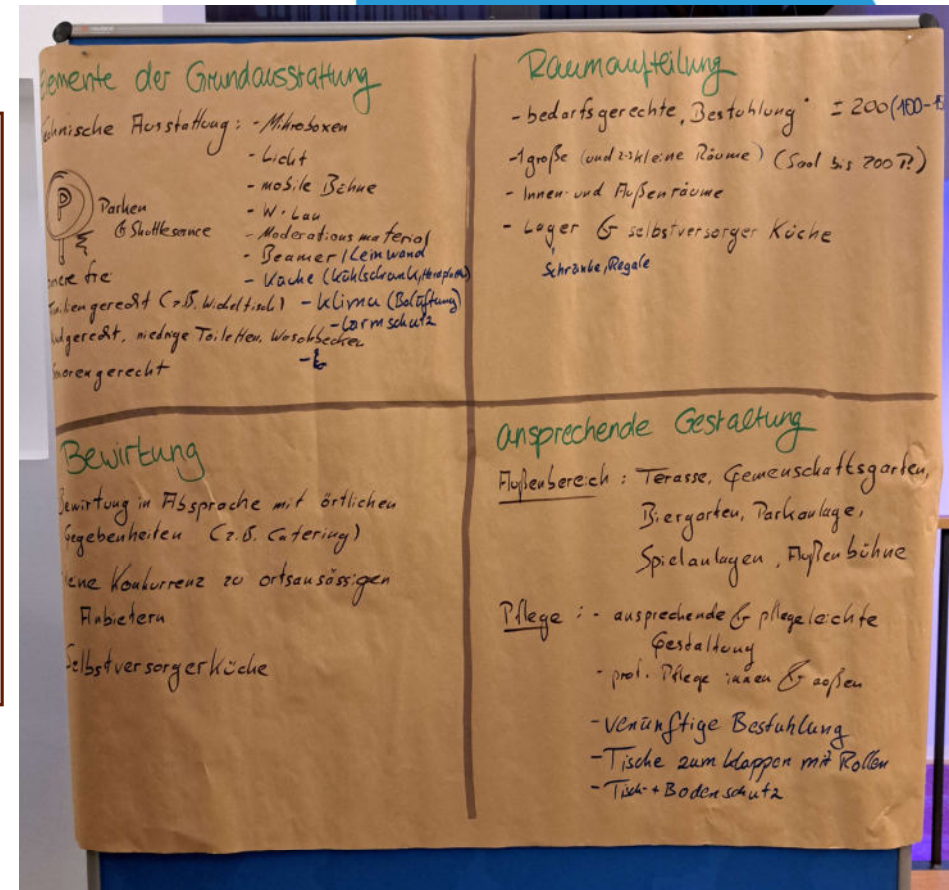 Elemente der Grundausstattung
Technische Ausstattung: - Mikroboxen
- Licht
- mobile Bühne
- W-Lan
- Moderationsmaterial
- Beamer/Leinwand
- Küche (Kühlschrank,
- Klima (Belüftung)
- Lärmschutz
P
Parken
& Shuttleservice
(z.B. Wickeltisch)
niedrige Toiletten, Waschbecken
Raumaufteilung
- bedarfsgerechte „Bestuhlung" = 200 (100-
- 1 große (und 2-3 kleine Räume) (Saal bis 200 P.)
- Innen- und Außenräume
- Lager & selbstversorger Küche
Schränke, Regale
Bewirtung
Bewirtung in Absprache mit örtlichen
Gegebenheiten (z.B. Catering)
Konkurrenz zu ortsansässigen
Anbietern
Selbstversorgerküche
ansprechende Gestaltung
Außenbereich: Terasse, Gemeinschaftsgarten,
Biergarten, Parkanlage,
Spielanlagen, Außenbühne
Pflege: - ansprechende & pflegeleichte
Gestaltung
- prof. Pflege innen & außen
- venünftige Bestuhlung
- Tische zum klappen mit Rollen
- Tisch- + Bodenschutz